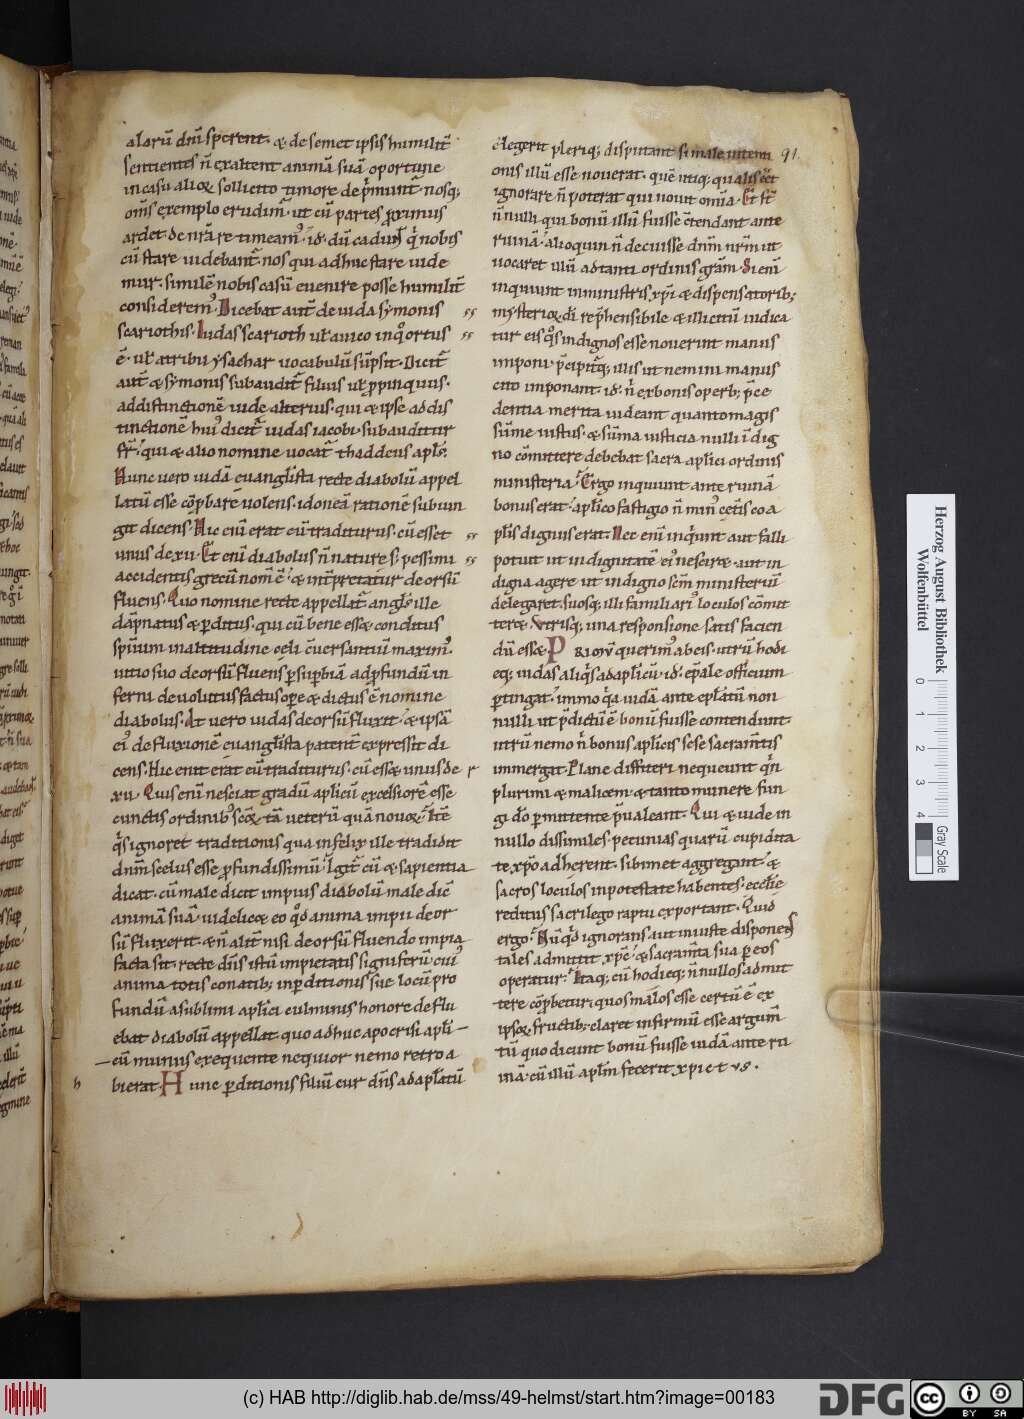 alarū dnī sperent. & de semet ipsis humilit̄
sentientes n̄ exaltent animā suā oportune
in casu alioꝝ sollicito timore dep̄munt̄ nosq;
om̄s exemplo erudim̄ ut cū paries proximus
ardet de nr̄a re timeam᷒. id. dū cadunt qͥ nobis
cū stare uidebant̄ nos qui adhuc stare uide
mur. similē nobis casū euenire posse humilit̄
considerem᷒. Dicebat aut̄ de iuda symonis
scariothis. Iudas scarioth ut̄ a uico in qͦ ortus
ē. ut̄ a tribu ysachar uocabulū sūpsit. Dicit̄
aut̄ & symonis subaudit̄ filius ut̄ ppinquus.
ad distinctionē iude alterius. qui & ipse ad dis
tinctione hui᷒ dicit̄ iudas iacobi. subauditur
fr̄. qui & alio nomine uocat̄ thaddeus apls.
Nunc uero iudā euanglista recte diabolū appel
latū esse cōpbare uolens. idoneā rationē subiun
git dicens. Hic eni erat eū traditurus. cū esset
unus de xii. Et eni diabolus n̄ nature s; pessimi
accidentis grecū nom̄ ē. & int̄pretatur deorsū
fluens. Quo nomine recte appellat̄ angls ille
dāpnatus & pditus. qui cū bene esset conditus
spirituum in altitudine celi cuersantiū maxim᷒.
uitio suo deorsū fluens p supbiā ad pfundū in
ferni deuolutus factus ope & dictus ē nomine
diabolus. At uero iudas deorsū fluxit. & ipsā
ei᷒ defluxionē euanglista patent̄ expressit di
cens. Hic enit erat eū traditurus. cū esset unus de
xii. Quis eni nesciat gradū aplicū excelsiorē esse
cunctis ordinib᷒ scoꝝ tā ueterū quā nouoꝝ. Itē
qͥs ignoret traditionis qua infelix ille tradidit
dnm scelus esse pfundissimū. Igit̄ cū & sapientia
dicat. cū male dicit impius diabolū male dic̄
animā suā. uidelicet eo qd anima impii deor
sū fluxerit. & n̄ alit̄ nisi deorsū fluendo impia
facta sit. recte dn̄s istū impietatis signiferū cui᷒
anima totis conatib; in pditionis sue locū pro
fundū a sublimi aplici culminis honore deflu
ebat diabolū appellat. quo adhuc apocrisi apli
cū munus exequente nequior nemo retro a
bierat. Hunc pditionis filiū cur dn̄s ad aplatū
elegerit pleriq; disputant si male mitem 91.
onis illū esse nouerat. quē utiq; qualis eēt
ignorare n̄ poterat qui nouit omia. Et st̄
n̄ nulli qui bonū illū fuisse c̄tendant ante
ruinā. alioquin n̄ decuisse dnm nrm ut
uocaret illū ad tanti ordinis grām. Si eni
inquiunt in ministris xpi & dispensatorib;
mysterioꝝ di rephensibile & illicitū iudica
tur eis qͦs indignos esse nouerint manus
imponi. p̄cipit̄q; illis ut nemini manus
cito imponant. id. n̄ ex bonis operb; p̄ce
dentia merita uideant quanto magis
sūme iustus. & sūma iusticia nulli īdig
no cōmittere debebat sacra aplici ordinis
ministeria. Ergo inquiunt ante ruinā
bonus erat. aplico fastigio n̄ min᷒ cetis coa
plis dignus erat. Nec eni inqͥunt aut falli
potuit ut indignitatē ei᷒ nesciret. aut in
digna agere ut indigno sem ministeriū
delegaret. suosq; illi familiari᷒ loculos cōmit
teret. Vtrisq; una responsione satis facien
dū esset. PRIorū querim᷒ ab eis. utrū hodi
eq; iudas aliqͥs ad aplicū. id. epale officium
ptingat. immo qͥa iudā ante eplatū non
nulli ut p̄dictū ē bonū fuisse contendunt.
utrū nemo n̄ bonus aplicis sese sacramtis
immergat. Plane diffiteri nequeunt qn̄
plurimi & malicem & tanto munere fun
gi do pmittente p̄ualeant. Qui & iude in
nullo dissimiles. pecunias quarū cupidita
te xpo adherent. sibimet aggregant. &
sacros loculos in potestate habentes. ecclie
reditus sacrilego raptu exportant. Quid
ergo. Nūqd ignorans aut iniuste disponens
tales admittit xpc. & sacramta sua p eos
operatur. Itaq; cū hodieq; n̄ nullos admit
tere cōpbetur. quos malos esse certū ē ex
ipsoꝝ fructib; claret infirmū esse argum̄
tū quo dicunt bonū fuisse iudā ante ru
inā. cū illū aplm fecerit xpictus.
Herzog August Bibliothek
Wolfenbüttel
0 1 2 3 4
Gray Scale
(c) HAB http://diglib.hab.de/mss/49-helmst/start.htm?image=00183
DFG
cc BY SA